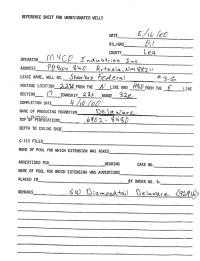 REFERENCE SHEET FOR UNDESIGNATED WELLS
DATE 5/16/00
OIL/GAS Oil
COUNTY Lea
OPERATOR MYCO Industries Inc
ADDRESS PO Box 840 Artesia, NM 88211
LEASE NAME, WELL NO. Federal #3-G
FOOTAGE LOCATION FROM THE N LINE AND 1980 FROM THE E LINE
SECTION TOWNSHIP 23s RANGE 32e
COMPLETION DATE 4/10/00
NAME OF PRODUCING FORMATION Delaware
TOP OF PERFORATIONS
DEPTH TO CASING SHOE
C-123 FILED
NAME OF POOL FOR WHICH EXTENSION WAS ASKED
ADVERTISED FOR HEARING CASE NO.
NAME OF POOL FOR WHICH EXTENSION WAS ADVERTISED
PLACED IN BY ORDER NO. R-
REMARKS SW Diamondtail Delaware